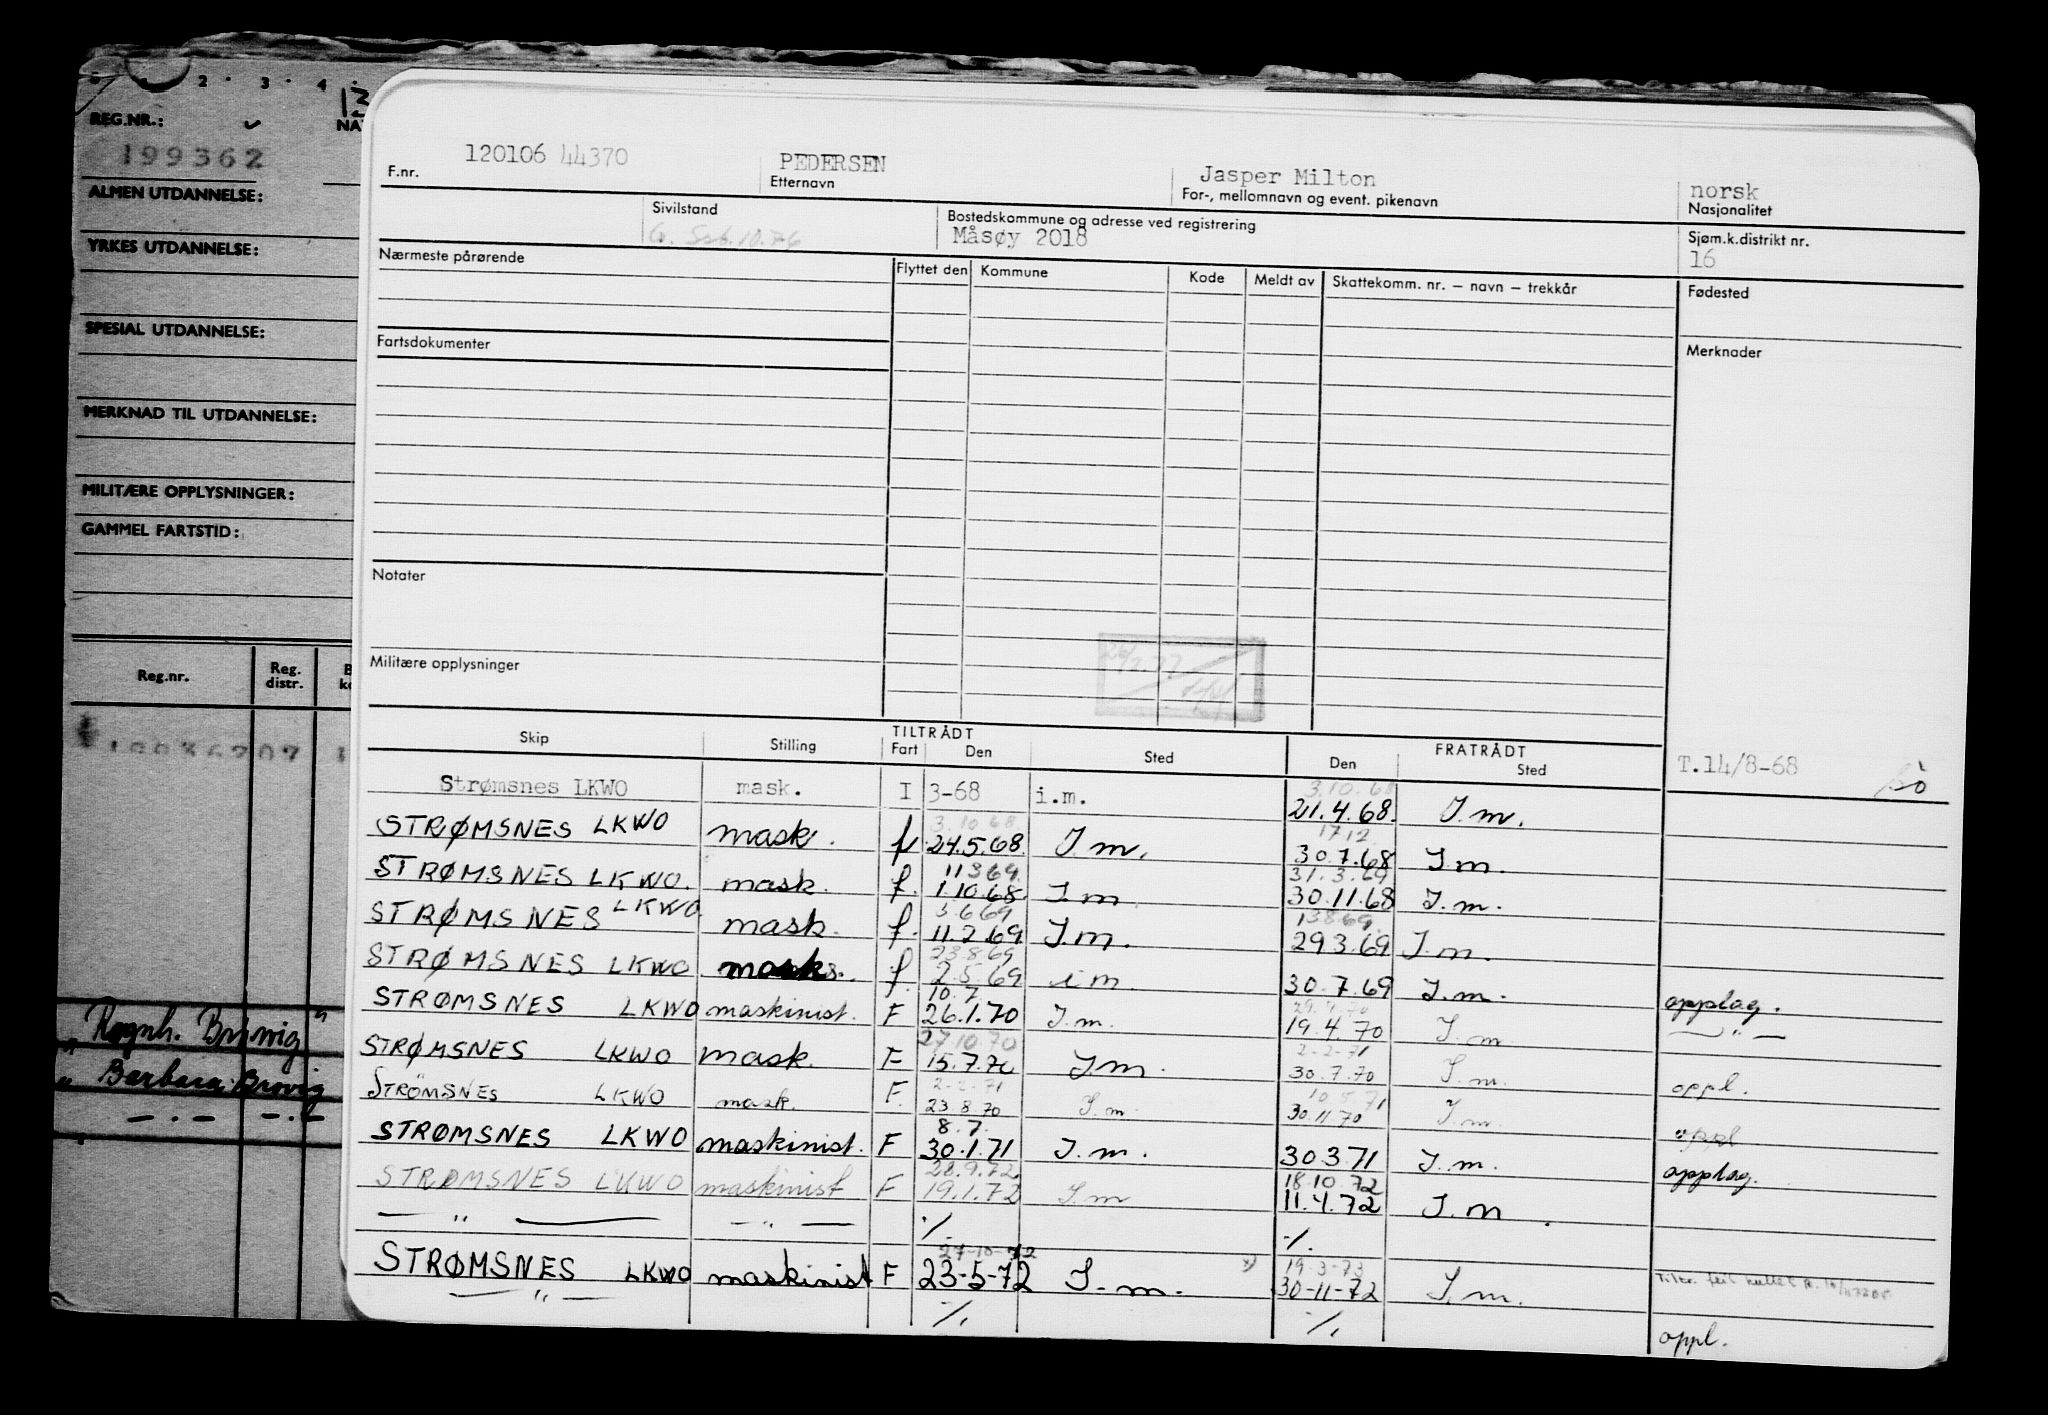 2 3 4
REG.NR.:
199362
ALMEN UTDANNELSE:
YRKES UTDANNELSE:
SPESIAL UTDANNELSE:
MERKNAD TIL UTDANNELSE:
MILITÆRE OPPLYSNINGER:
GAMMEL FARTSTID:
Reg.nr. Reg. distr.
Ragnh. Brøvig
" Barbara Brovig
F.nr. 120106 44370
PEDERSEN
Etternavn
Jasper Milton
For-, mellomnavn og event. pikenavn
norsk
Nasjonalitet
Sivilstand
Bostedskommune og adresse ved registrering
Måsøy 2018
Sjøm.k.distrikt nr.
16
Nærmeste pårørende
Flyttet den Kommune Kode Meldt av Skattekomm. nr. – navn – trekkår
Fødested
Fartsdokumenter
Merknader
Notater
Militære opplysninger
TILTRÅDT FRATRÅDT
Skip Stilling Fart Den Sted Den Sted
T.14/8-68
3.10.68
Strømsnes LKWO mask. I 3-68 i.m. 21.4.68. I.m.
3.10.68 17.12
STRØMSNES LKWO mask. f 24.5.68. I.m. 30.7.68 I.m.
11.3.69. 31.3.69
STRØMSNES LKWO. mask. f. 1.10.68. I.m 30.11.68 I.m.
3.6.69 13.8.69.
STRØMSNES LKWO mask. f. 11.2.69 I.m. 29.3.69 I.m.
23.8.69
STRØMSNES LKWO mask. f 2.5.69 i m 30.7.69 I.m. opplag.
10.7. 29.9.70
STRØMSNES LKWO maskinist. F 26.1.70 I.m. 19.4.70 I.m — " —
27.10.70 2-2-71
STRØMSNES LKWO mask. F 15.7.70 I.m. 30.7.70 I.m. oppl.
2-2-71 10.5.71
STRØMSNES LKWO mask. F. 23.8.70 I.m. 30.11.70 I.m. oppl
8.7.
STRØMSNES LKWO maskinist. F 30.1.71 I.m. 30.3.71 I.m. opplag.
28.9.72 18.10.72
STRØMSNES LKWO maskinist F 19.1.72 I.m 11.4.72 I.m.
— " — — " — ./. ./.
27-10-72 19-3-73
STRØMSNES LKWO maskinist F 23-5-72 I.m. 30-11-72 I.m.
— " — ./. ./. oppl.